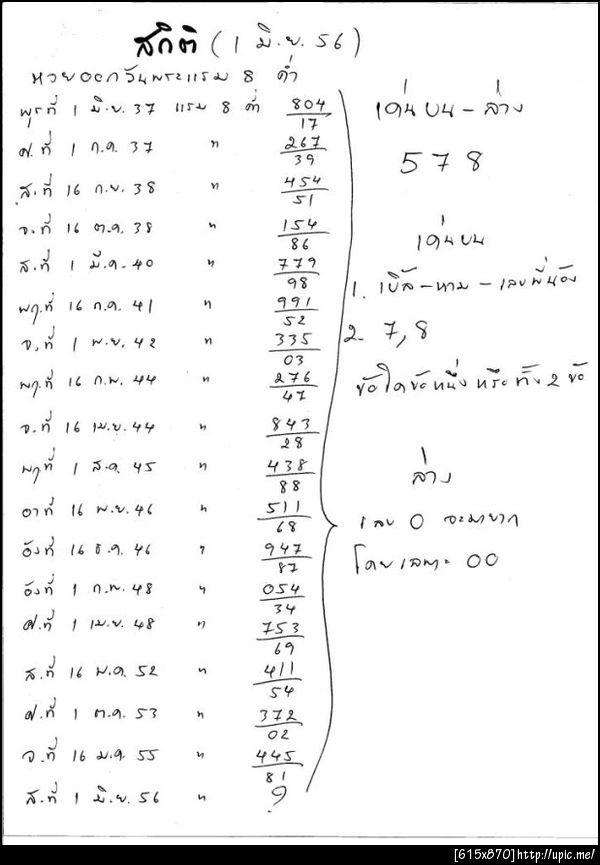 สถิติ (1 มิ.ย. 56)
หวยออกวันพระแรม 8 ค่ำ
พุธที่ 1 มิ.ย. 37 แรม 8 ค่ำ 804
17
ศ.ที่ 1 ก.ค. 37 " 267
39
ส.ที่ 16 ก.ย. 38 " 454
51
จ.ที่ 16 ต.ค. 38 " 154
86
ส.ที่ 1 มี.ค. 40 " 779
98
พฤ.ที่ 16 ก.ค. 41 " 991
52
จ.ที่ 1 พ.ย. 42 " 335
03
พฤ.ที่ 16 ก.พ. 44 " 276
47
จ.ที่ 16 เม.ย. 44 " 843
28
พฤ.ที่ 1 ส.ค. 45 " 438
88
อาที่ 16 พ.ย. 46 " 511
68
อังที่ 16 ธ.ค. 46 " 947
87
อังที่ 1 ก.พ. 48 " 054
34
ศ.ที่ 1 เม.ย. 48 " 753
69
ส.ที่ 16 พ.ค. 52 " 411
54
ศ.ที่ 1 ต.ค. 53 " 372
02
จ.ที่ 16 ม.ค. 55 " 445
81
ส.ที่ 1 มิ.ย. 56 " ?
เด่นบน - ล่าง
5 7 8
เด่นบน
1. เบิ้ล - หาม - เลขพี่น้อง
2. 7, 8
ข้อใดข้อหนึ่ง หรือทั้ง 2 ข้อ
ล่าง
เลข 0 จะมายาก
โดยเฉพาะ 00
[615x870]http://upic.me/